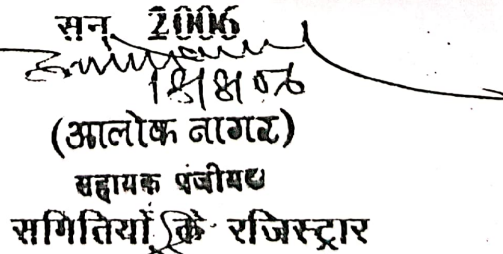 सन् 2006
(आलोक नागर)
सहायक पंजीयक
समितियों के रजिस्ट्रार